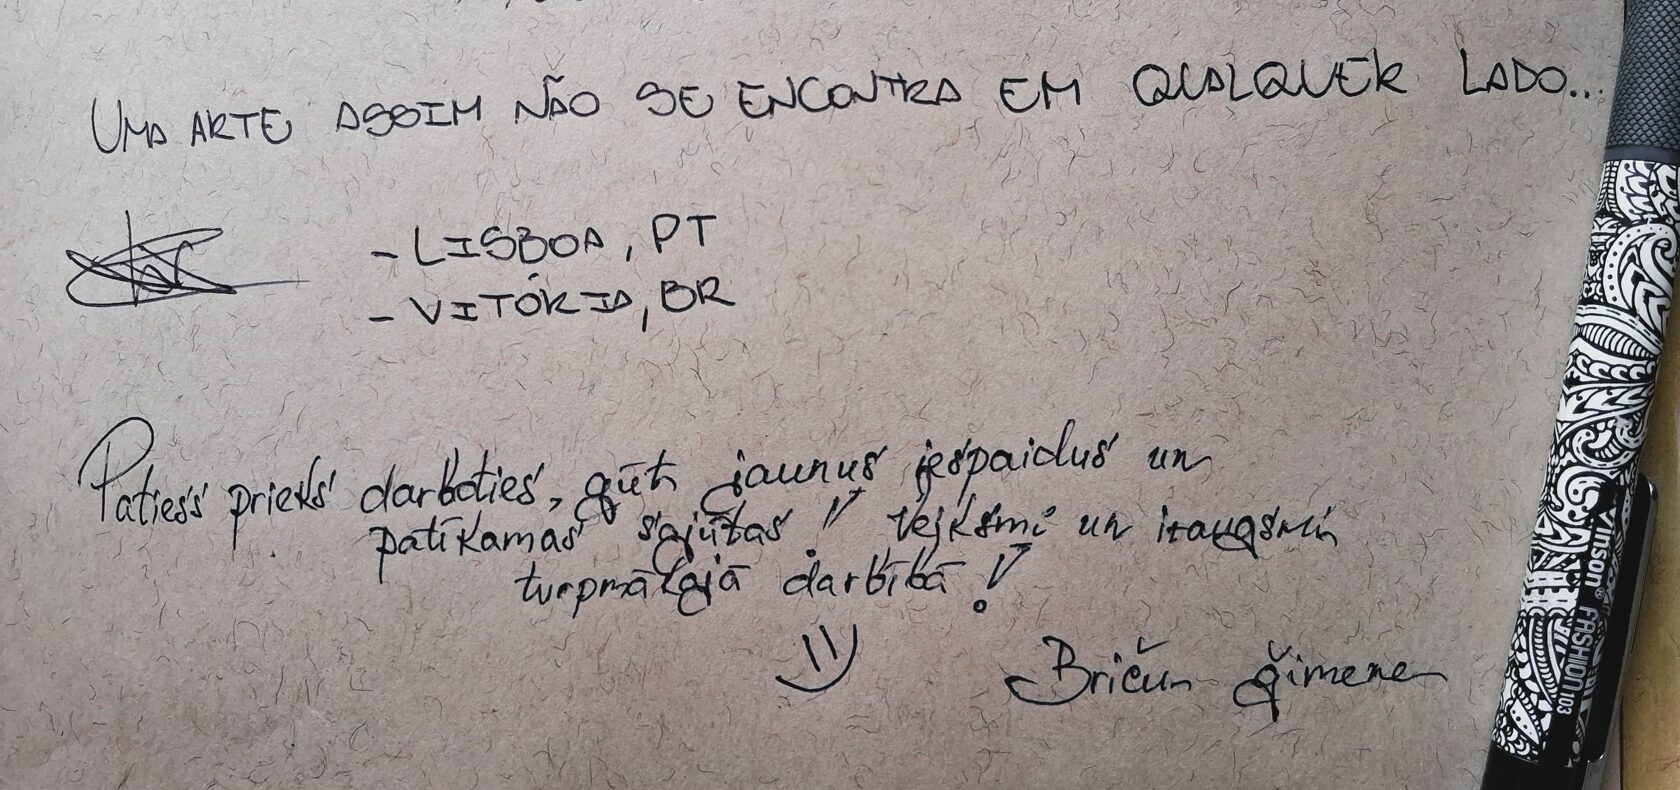 UMA ARTE ASSIM NÃO SE ENCONTRA EM QUALQUER LADO...
- LISBOA, PT
- VITÓRIA, BR
Patiess prieks darboties, gūt jaunus iespaidus un
patīkamas sajūtas! Veiksmi un izaugsmi
turpmākajā darbībā!
Bričun ģimene
Vinson® FASHION 103